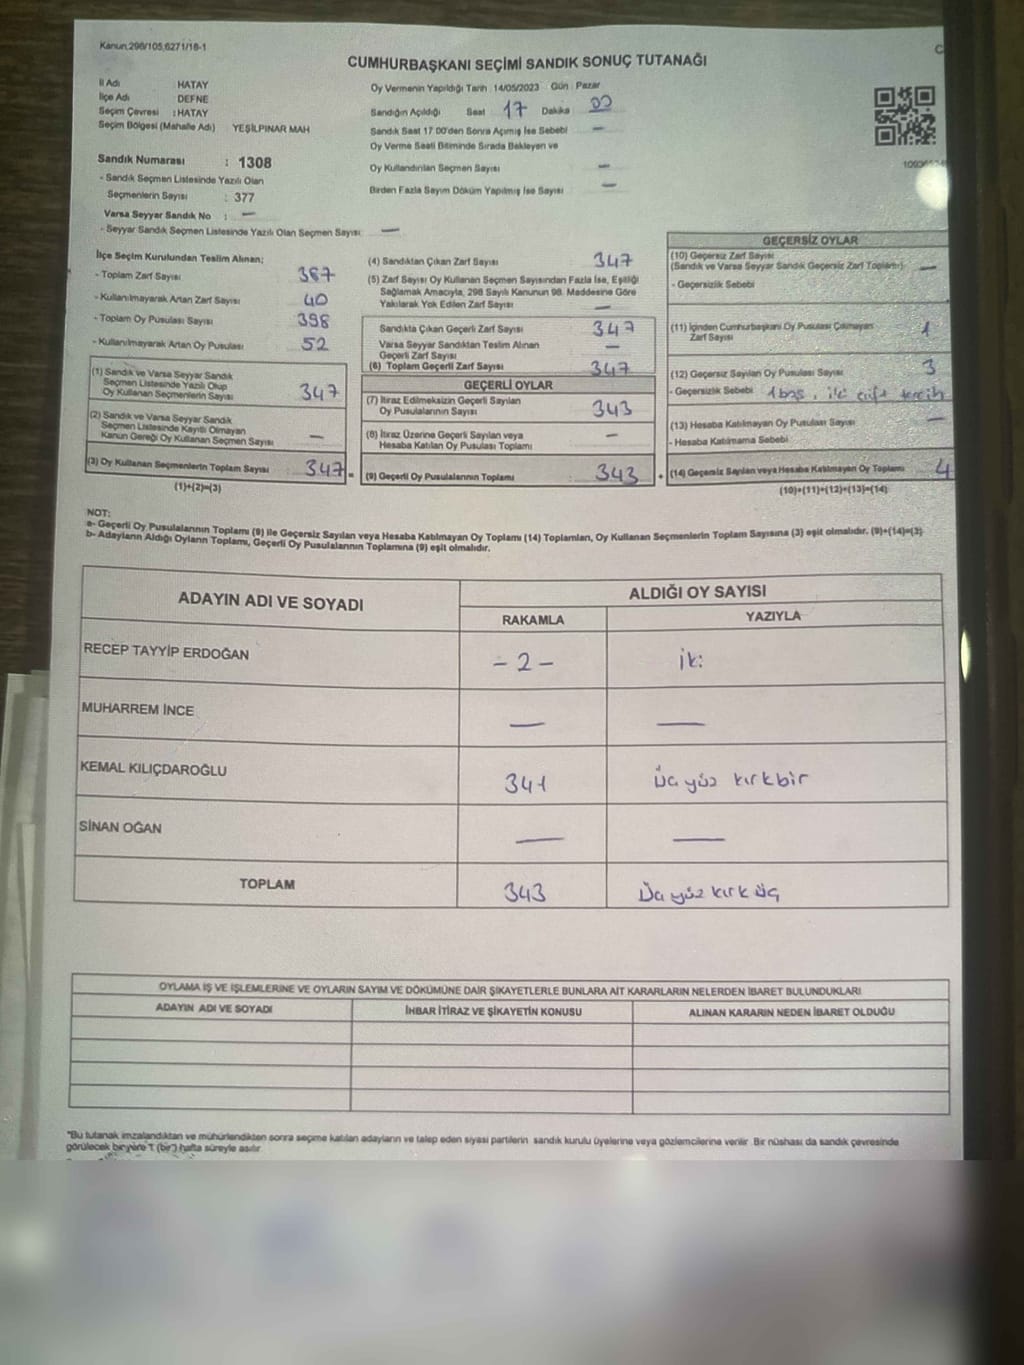 Kanun;298/105;6271/18-1
CUMHURBAŞKANI SEÇİMİ SANDIK SONUÇ TUTANAĞI
İl Adı HATAY
İlçe Adı DEFNE
Seçim Çevresi : HATAY
Seçim Bölgesi (Mahalle Adı) YEŞİLPINAR MAH
Sandık Numarası : 1308
- Sandık Seçmen Listesinde Yazılı Olan
Seçmenlerin Sayısı : 377
Varsa Seyyar Sandık No : —
- Seyyar Sandık Seçmen Listesinde Yazılı Olan Seçmen Sayısı: —
Oy Vermenin Yapıldığı Tarih 14/05/2023 Gün Pazar
Sandığın Açıldığı Saat 17 Dakika 00
Sandık Saat 17 00'den Sonra Açımış İse Sebebi —
Oy Verme Saati Bitiminde Sırada Bekleyen ve
Oy Kullandırılan Seçmen Sayısı —
Birden Fazla Sayım Döküm Yapılmış İse Sayısı —
İlçe Seçim Kurulundan Teslim Alınan;
- Toplam Zarf Sayısı 387
- Kullanılmayarak Artan Zarf Sayısı 40
- Toplam Oy Pusulası Sayısı 398
- Kullanılmayarak Artan Oy Pusulası 52
(1) Sandık ve Varsa Seyyar Sandık
Seçmen Listesinde Yazılı Olup
Oy Kullanan Seçmenlerin Sayısı 347
(2) Sandık ve Varsa Seyyar Sandık
Seçmen Listesinde Kayıtlı Olmayan
Kanun Gereği Oy Kullanan Seçmen Sayısı —
(3) Oy Kullanan Seçmenlerin Toplam Sayısı 347 =
(1)+(2)=(3)
(4) Sandıktan Çıkan Zarf Sayısı 347
(5) Zarf Sayısı Oy Kullanan Seçmen Sayısından Fazla İse, Eşitliği
Sağlamak Amacıyla, 298 Sayılı Kanunun 98. Maddesine Göre
Yakılarak Yok Edilen Zarf Sayısı —
Sandıkta Çıkan Geçerli Zarf Sayısı 347
Varsa Seyyar Sandıktan Teslim Alınan
Geçerli Zarf Sayısı —
(6) Toplam Geçerli Zarf Sayısı 347
GEÇERLİ OYLAR
(7) İtiraz Edilmeksizin Geçerli Sayılan
Oy Pusulalarının Sayısı 343
(8) İtiraz Üzerine Geçerli Sayılan veya
Hesaba Katılan Oy Pusulası Toplamı —
(9) Geçerli Oy Pusulalarının Toplamı 343 +
GEÇERSİZ OYLAR
(10) Geçersiz Zarf Sayısı
(Sandık ve Varsa Seyyar Sandık Geçersiz Zarf Toplamı) —
- Geçersizlik Sebebi
(11) İçinden Cumhurbaşkanı Oy Pusulası Çıkmayan
Zarf Sayısı 1
(12) Geçersiz Sayılan Oy Pusulası Sayısı 3
- Geçersizlik Sebebi 1 boş, iki çift tercih
(13) Hesaba Katılmayan Oy Pusulası Sayısı —
- Hesaba Katılmama Sebebi
(14) Geçersiz Sayılan veya Hesaba Katılmayan Oy Toplamı 4
(10)+(11)+(12)+(13)=(14)
NOT:
a- Geçerli Oy Pusulalarının Toplamı (9) ile Geçersiz Sayılan veya Hesaba Katılmayan Oy Toplamı (14) Toplamları, Oy Kullanan Seçmenlerin Toplam Sayısına (3) eşit olmalıdır. (9)+(14)=(3)
b- Adayların Aldığı Oyların Toplamı, Geçerli Oy Pusulalarının Toplamına (9) eşit olmalıdır.
ADAYIN ADI VE SOYADI ALDIĞI OY SAYISI
RAKAMLA YAZIYLA
RECEP TAYYİP ERDOĞAN - 2 - iki
MUHARREM İNCE — —
KEMAL KILIÇDAROĞLU 341 Üç yüz kırkbir
SİNAN OĞAN — —
TOPLAM 343 Üç yüz kırk üç
OYLAMA İŞ VE İŞLEMLERİNE VE OYLARIN SAYIM VE DÖKÜMÜNE DAİR ŞİKAYETLERLE BUNLARA AİT KARARLARIN NELERDEN İBARET BULUNDUKLARI
ADAYIN ADI VE SOYADI İHBAR İTİRAZ VE ŞİKAYETİN KONUSU ALINAN KARARIN NEDEN İBARET OLDUĞU
*Bu tutanak imzalandıktan ve mühürlendikten sonra seçime katılan adayların ve talep eden siyasi partilerin sandık kurulu üyelerine veya gözlemcilerine verilir. Bir nüshası da sandık çevresinde
görülecek bir yere 1 (bir) hafta süreyle asılır.